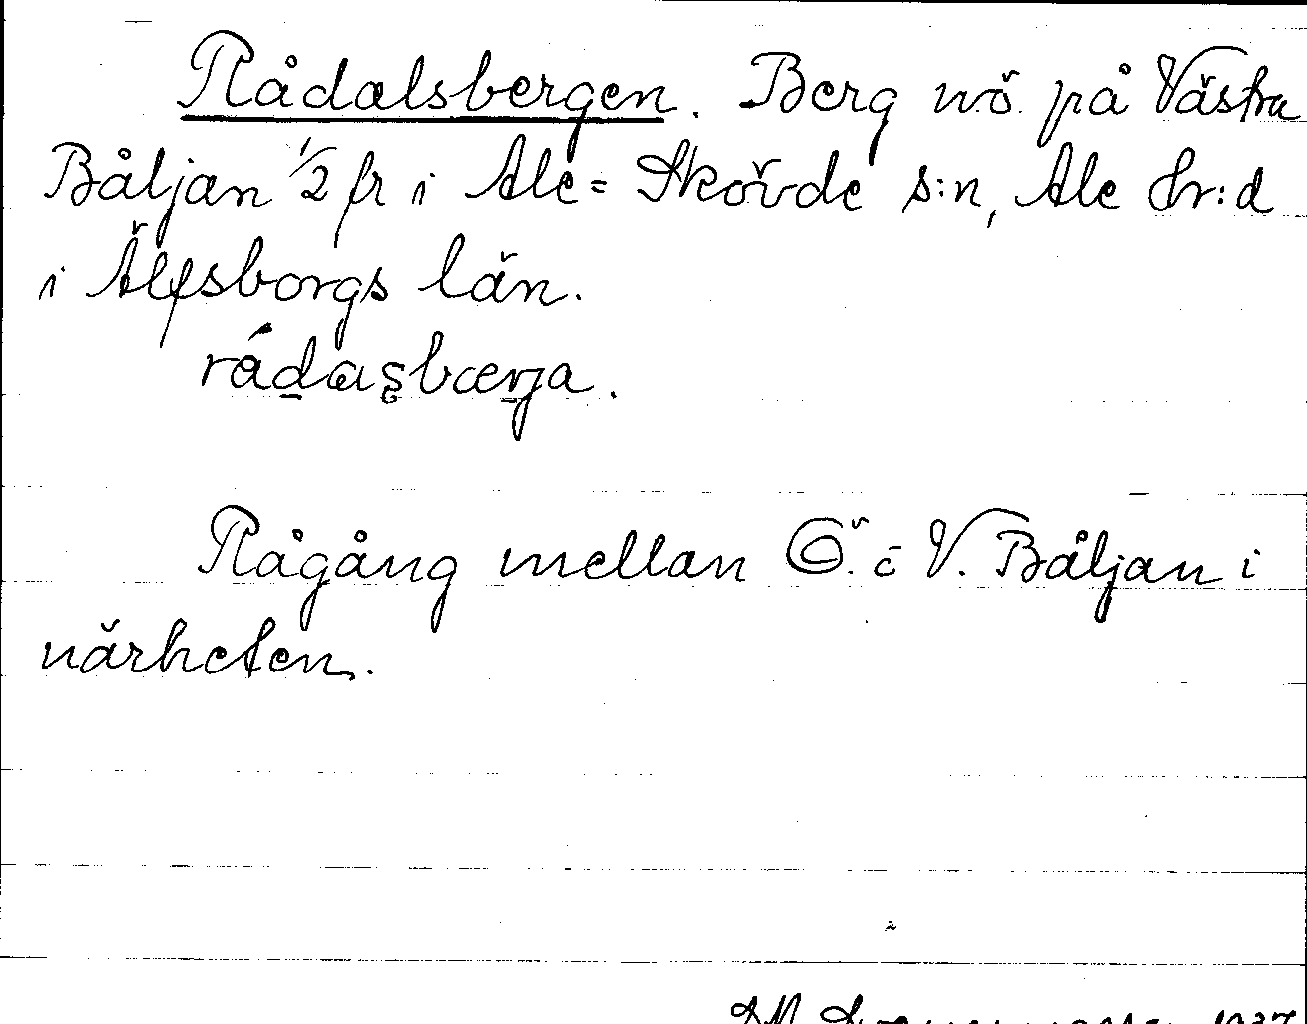 Rådalsbergen. Berg nö. på Västra
Båljan 1/2 fr i Ale-Skövde s:n, Ale hr:d
i Älfsborgs län.
rådasbærja.
Rågång mellan Ö. o V. Båljan i
närheten.